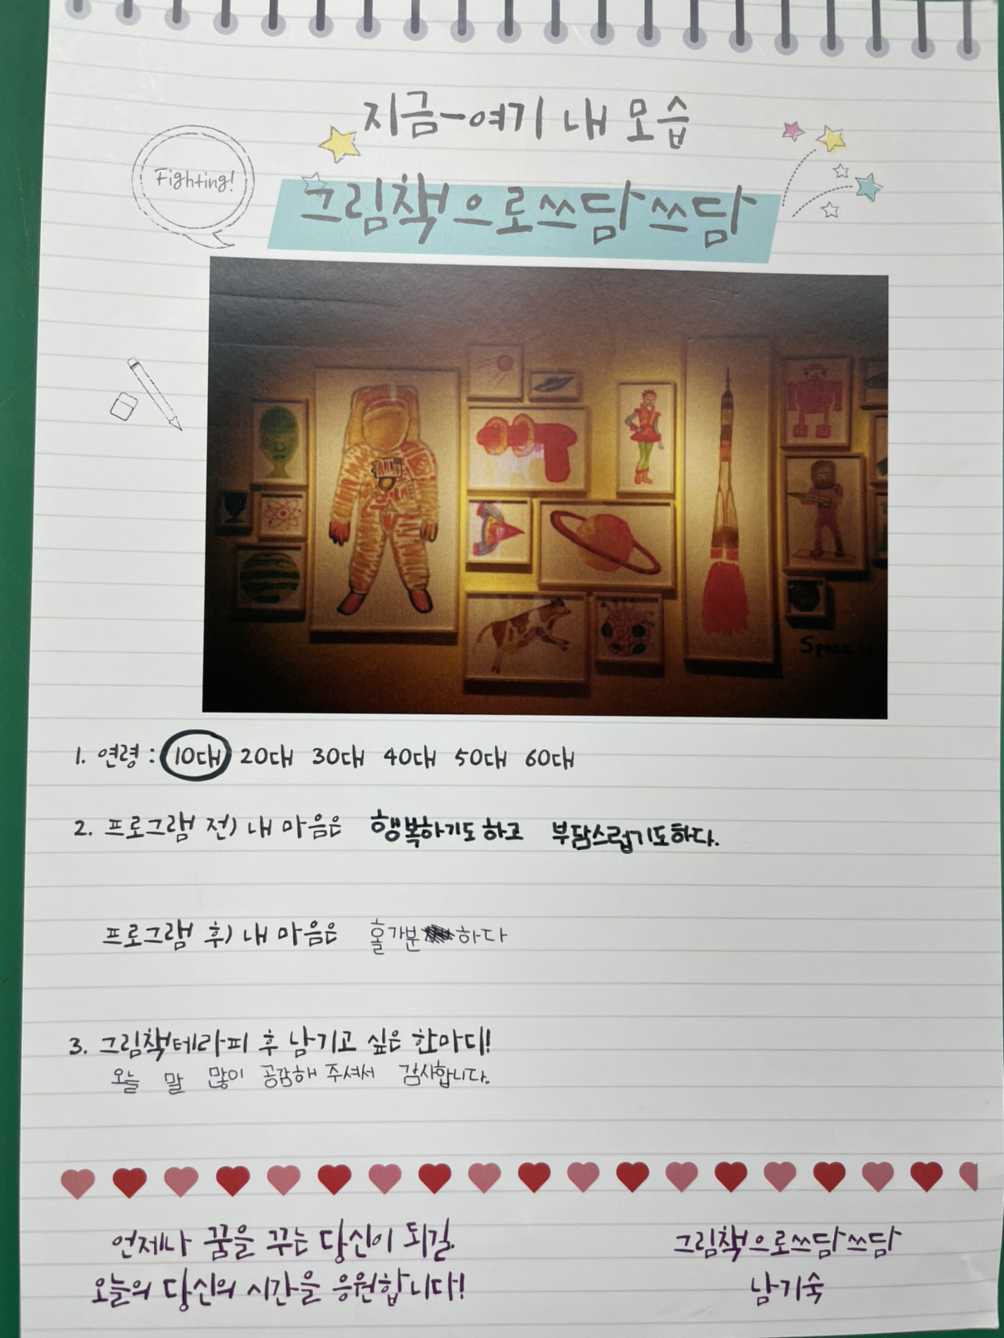 지금-여기 내 모습
Fighting!
그림책으로쓰담쓰담
Space
1. 연령 : 10대 20대 30대 40대 50대 60대
2. 프로그램 전) 내 마음은 행복하기도 하고 부담스럽기도하다.
프로그램 후) 내 마음은 홀가분 하다
3. 그림책테라피 후 남기고 싶은 한마디!
오늘 말 많이 공감해 주셔서 감사합니다.
언제나 꿈을 꾸는 당신이 되길
오늘의 당신의 시간을 응원합니다!
그림책으로쓰담쓰담
남기숙